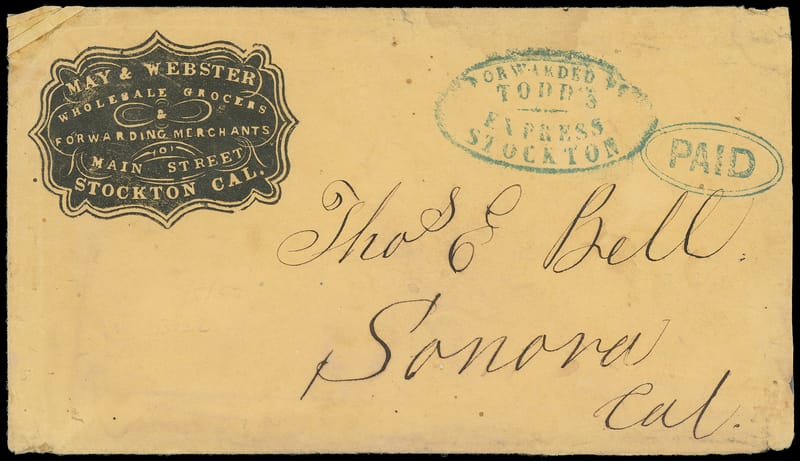 MAY & WEBSTER
WHOLESALE GROCERS
&
FORWARDING MERCHANTS
MAIN STREET
STOCKTON CAL.
FORWARDED BY
TODD'S
EXPRESS
STOCKTON
PAID
Thos E Bell.
Sonora
Cal.